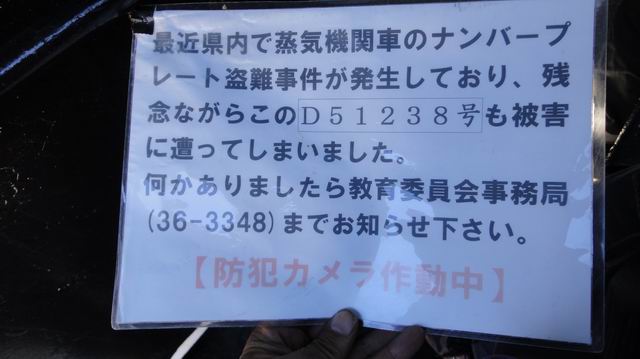 最近県内で蒸気機関車のナンバープ
レート盗難事件が発生しており、残
念ながらこのD51238号も被害
に遭ってしまいました。
何かありましたら教育委員会事務局
(36-3348)までお知らせ下さい。
【防犯カメラ作動中】